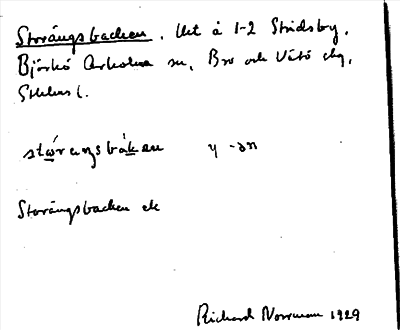 Storängsbacken. Utt å 1-2 Stridsby,
Björkö Arholma sn, Bro och Vätö chg,
Sthlms l.
stωrensbakan y -ən
Storängsbacken ek
Richard Norrman 1929